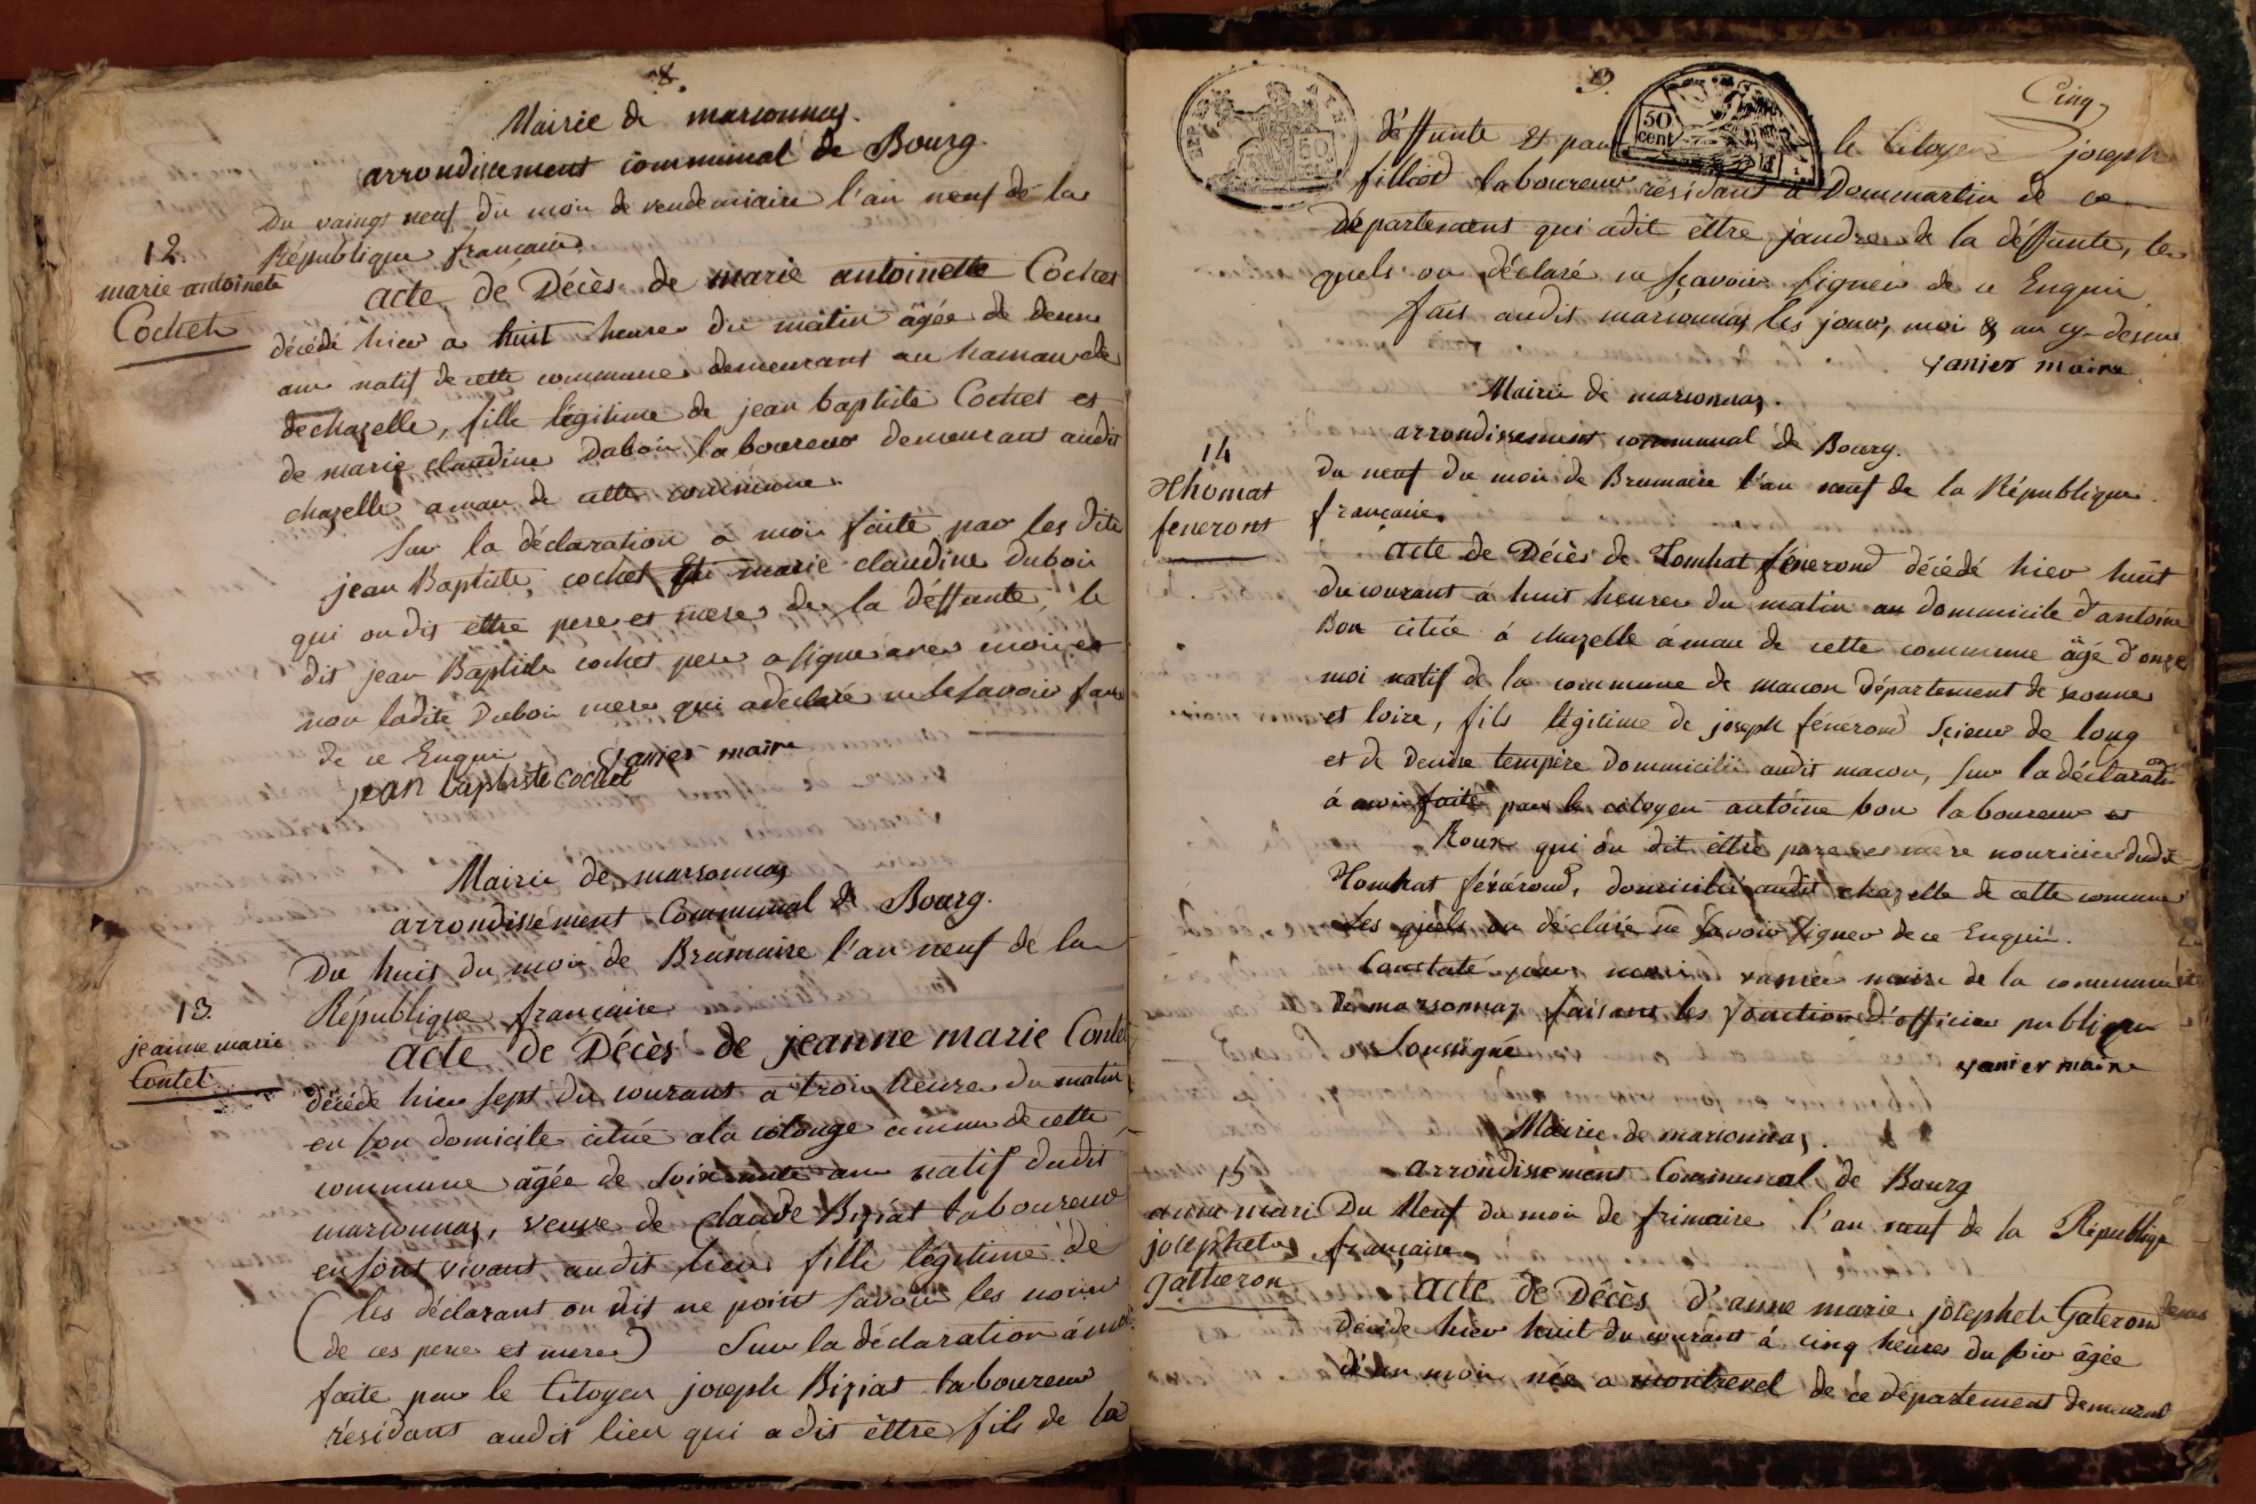 8.
Mairie de marsonnas.
arrondissement communal de Bourg.
Du vaingt neuf du mois de vendemiaire l'an neuf de la
République française
12.
marie antoinete
Cochet
acte de Décès de marie antoinette Cochet
décédé hier a huit heures du matin âgée de deux
ans natif de cette commune demeurant au hamau de
dechazelle, fille légitime de jean baptiste Cochet et
de marie claudine Duboin laboureur demeurant audit
chazelle amau de cette commune.
Sur la déclaration a moi faite par les dits
jean Baptiste, cochet et marie claudine Duboin
qui on dit ettre pere et mere de la déffunte, le
dit jean Baptiste cochet pere a signé avec moi, et
non ladite Duboin mere qui a déclaré ne le savoir faire
de ce Enquis
vanier maire
jean baptiste cochet
Mairie de marsonnas
arrondissement Communal de Bourg.
Du huit du mois de Brumaire l'an neuf de la
République française
13.
jeanne marie
Contet
acte de Décès de jeanne marie Contet
décédé hier sept du courant a trois heures du matin
en son domicile citué a la colonge amau de cette
commune âgée de soixante ans natif dudit
marsonnas, veuve de Claude Biziat laboureur
en sont vivant audit lieu fille légitime de
(les déclarant on dit ne point savoir les noms
de ces pere et mere) Sur la déclaration á moi
faite par le Citoyen joseph Biziat laboureur
résidant audit lieu qui a dit êttre fils de la
9.
Cinq
50
cent
déffunte et par le Citoyen joseph
filliod laboureur résidant a Dommartin de ce
département qui a dit êttre jandre de la déffunte, les
quels on déclaré ne sçavoir signer de ce Enquis
fait audit marsonnas les jour, moi & an cy-dessus
vanier maire
Mairie de marsonnas.
arrondissement communal de Bourg.
14
Thomat
feneront
du neuf du moi de Brumaire l'an neuf de la République
française.
acte de Décès de Tomhat fénerond décédé hier huit
du courant á huit heures du matin au dommicile d'antoine
Bon citué á chazelle ámau de cette commune âgé d'onze
moi natif de la commune de macon département de saonne
et loire, fils légitime de joseph fénérond scieur de long
et de Denise tempère dommicilié audit macon, sur la déclaration
á moi faite par le citoyen antoine bon laboureur et
Roux qui on dit êttre pere et mere nouricier dudit
Tomhat fénérond, domicilié audit chazelle de cette commune
Les quels on déclaré ne savoir signer de ce Enquis.
Constaté par moi vanier maire de la commune
de marsonnas faisant les fonction d'officier publique
Soussigné
vanier maire
Mairie de marsonnas.
arrondissement Communal de Bourg
15
anne mari
josephete
galteron
Du Neuf du moi de frimaire l'an neuf de la République
française
acte de Décès d'anne marie josephete Gaterond
décédé hier huit du courant á cinq heures du soir âgée
d'un moi née a montrevel de ce département demeurant